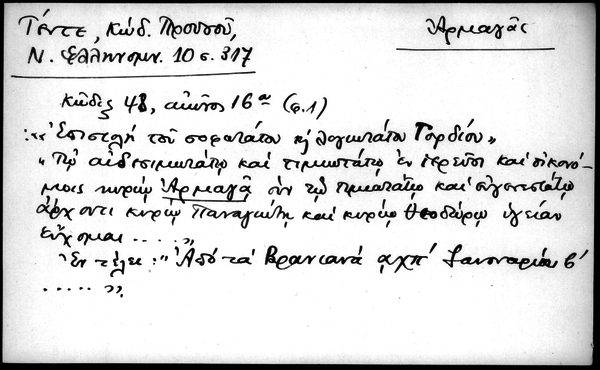 Τέντε, Κώδ. Προυσοῦ, Ἀρμαγᾶς
Ν. Ἑλληνομν. 10 σ. 317
Κῶδιξ 48, αἰῶνος 16ου (φ.1)
: «Ἐπιστολή τοῦ σοφωτάτου κ λογιωτάτου Γορδίου»
«Τῷ αἰδεσιμωτάτῳ καί τιμιωτάτῳ ἐν ἱερεῦσι καί οἰκονό-
μοις κυρίῳ Ἀρμαγᾷ σύν τῷ τιμιωτάτῳ καί εὐγενεστάτῳ
ἄρχοντι κυρίῳ Παναγιώτῃ καί κυρίῳ Θεοδώρῳ ὑγείαν
εὔχομαι.....»
Ἐν τέλει: "Ἀπό τά Βρανιανά αχπ΄ Ἰανουαρίου β΄
.....»